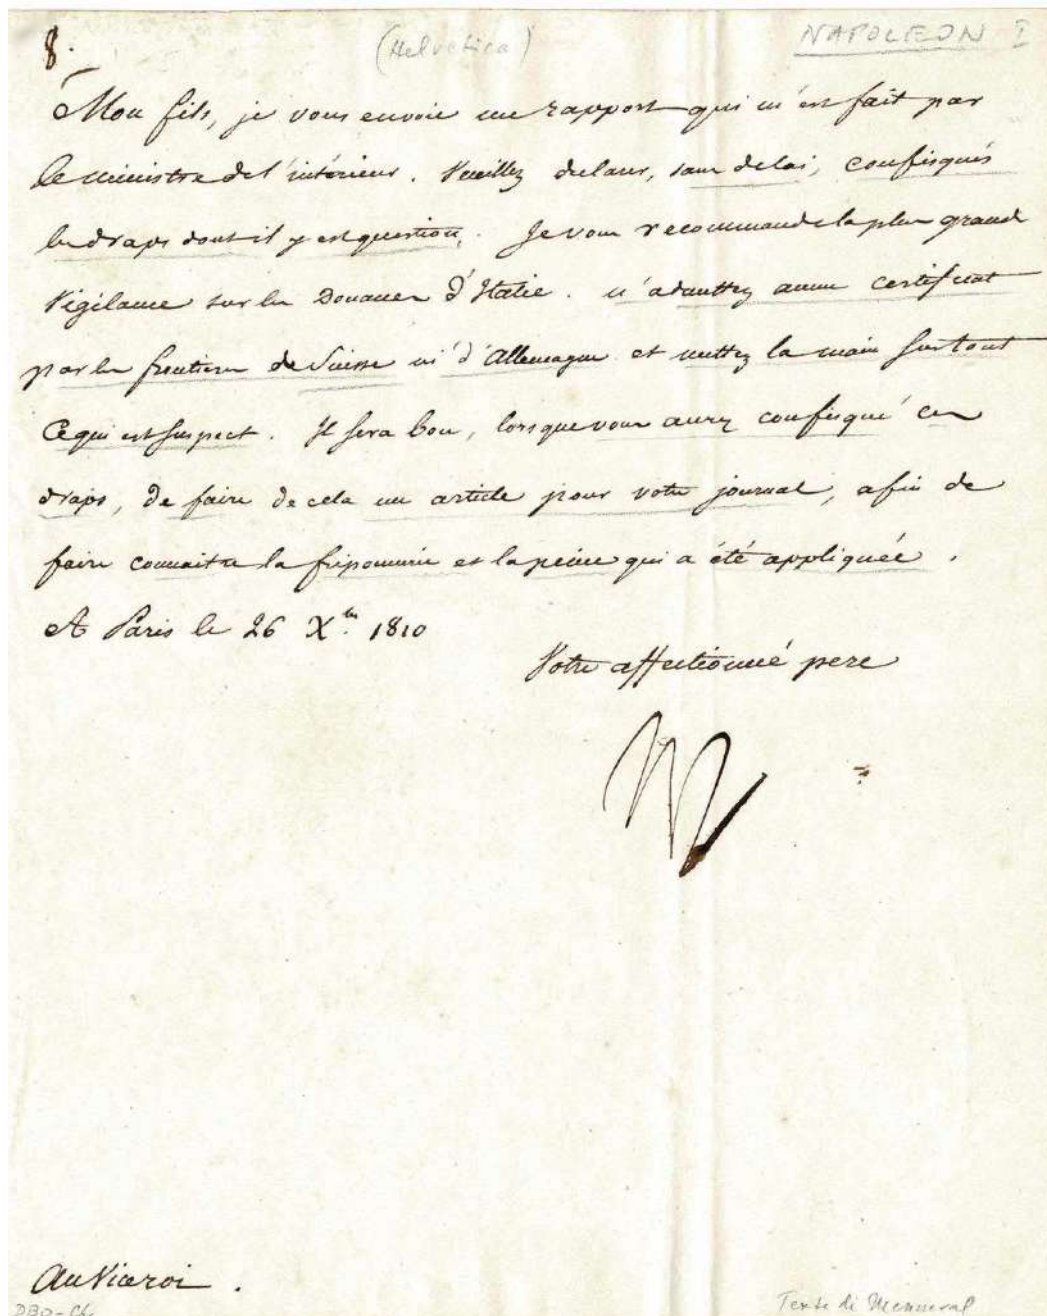 8.
(Helvetica)
NAPOLEON I
Mon fils, je vous envoie un rapport qui m'est fait par
le ministre de l'intérieur. Veuillez declarer, sans delai, confisqués
les draps dont il y est question. Je vous recommande la plus grande
Vigilance sur les Douanes d'Italie. n'admettez aucun certificat
par les frontieres de Suisse ni d'Allemagne et mettez la main sur tout
Ce qui est suspect. Il sera bon, lorsque vous aurez confisqué ces
draps, de faire de cela un article pour votre journal, afin de
faire connaitre la friponnerie et la peine qui a été appliquée.
A Paris le 26 Xbre. 1810
Votre affectionné pere
N
Au Viceroi.
Texte di Menneval